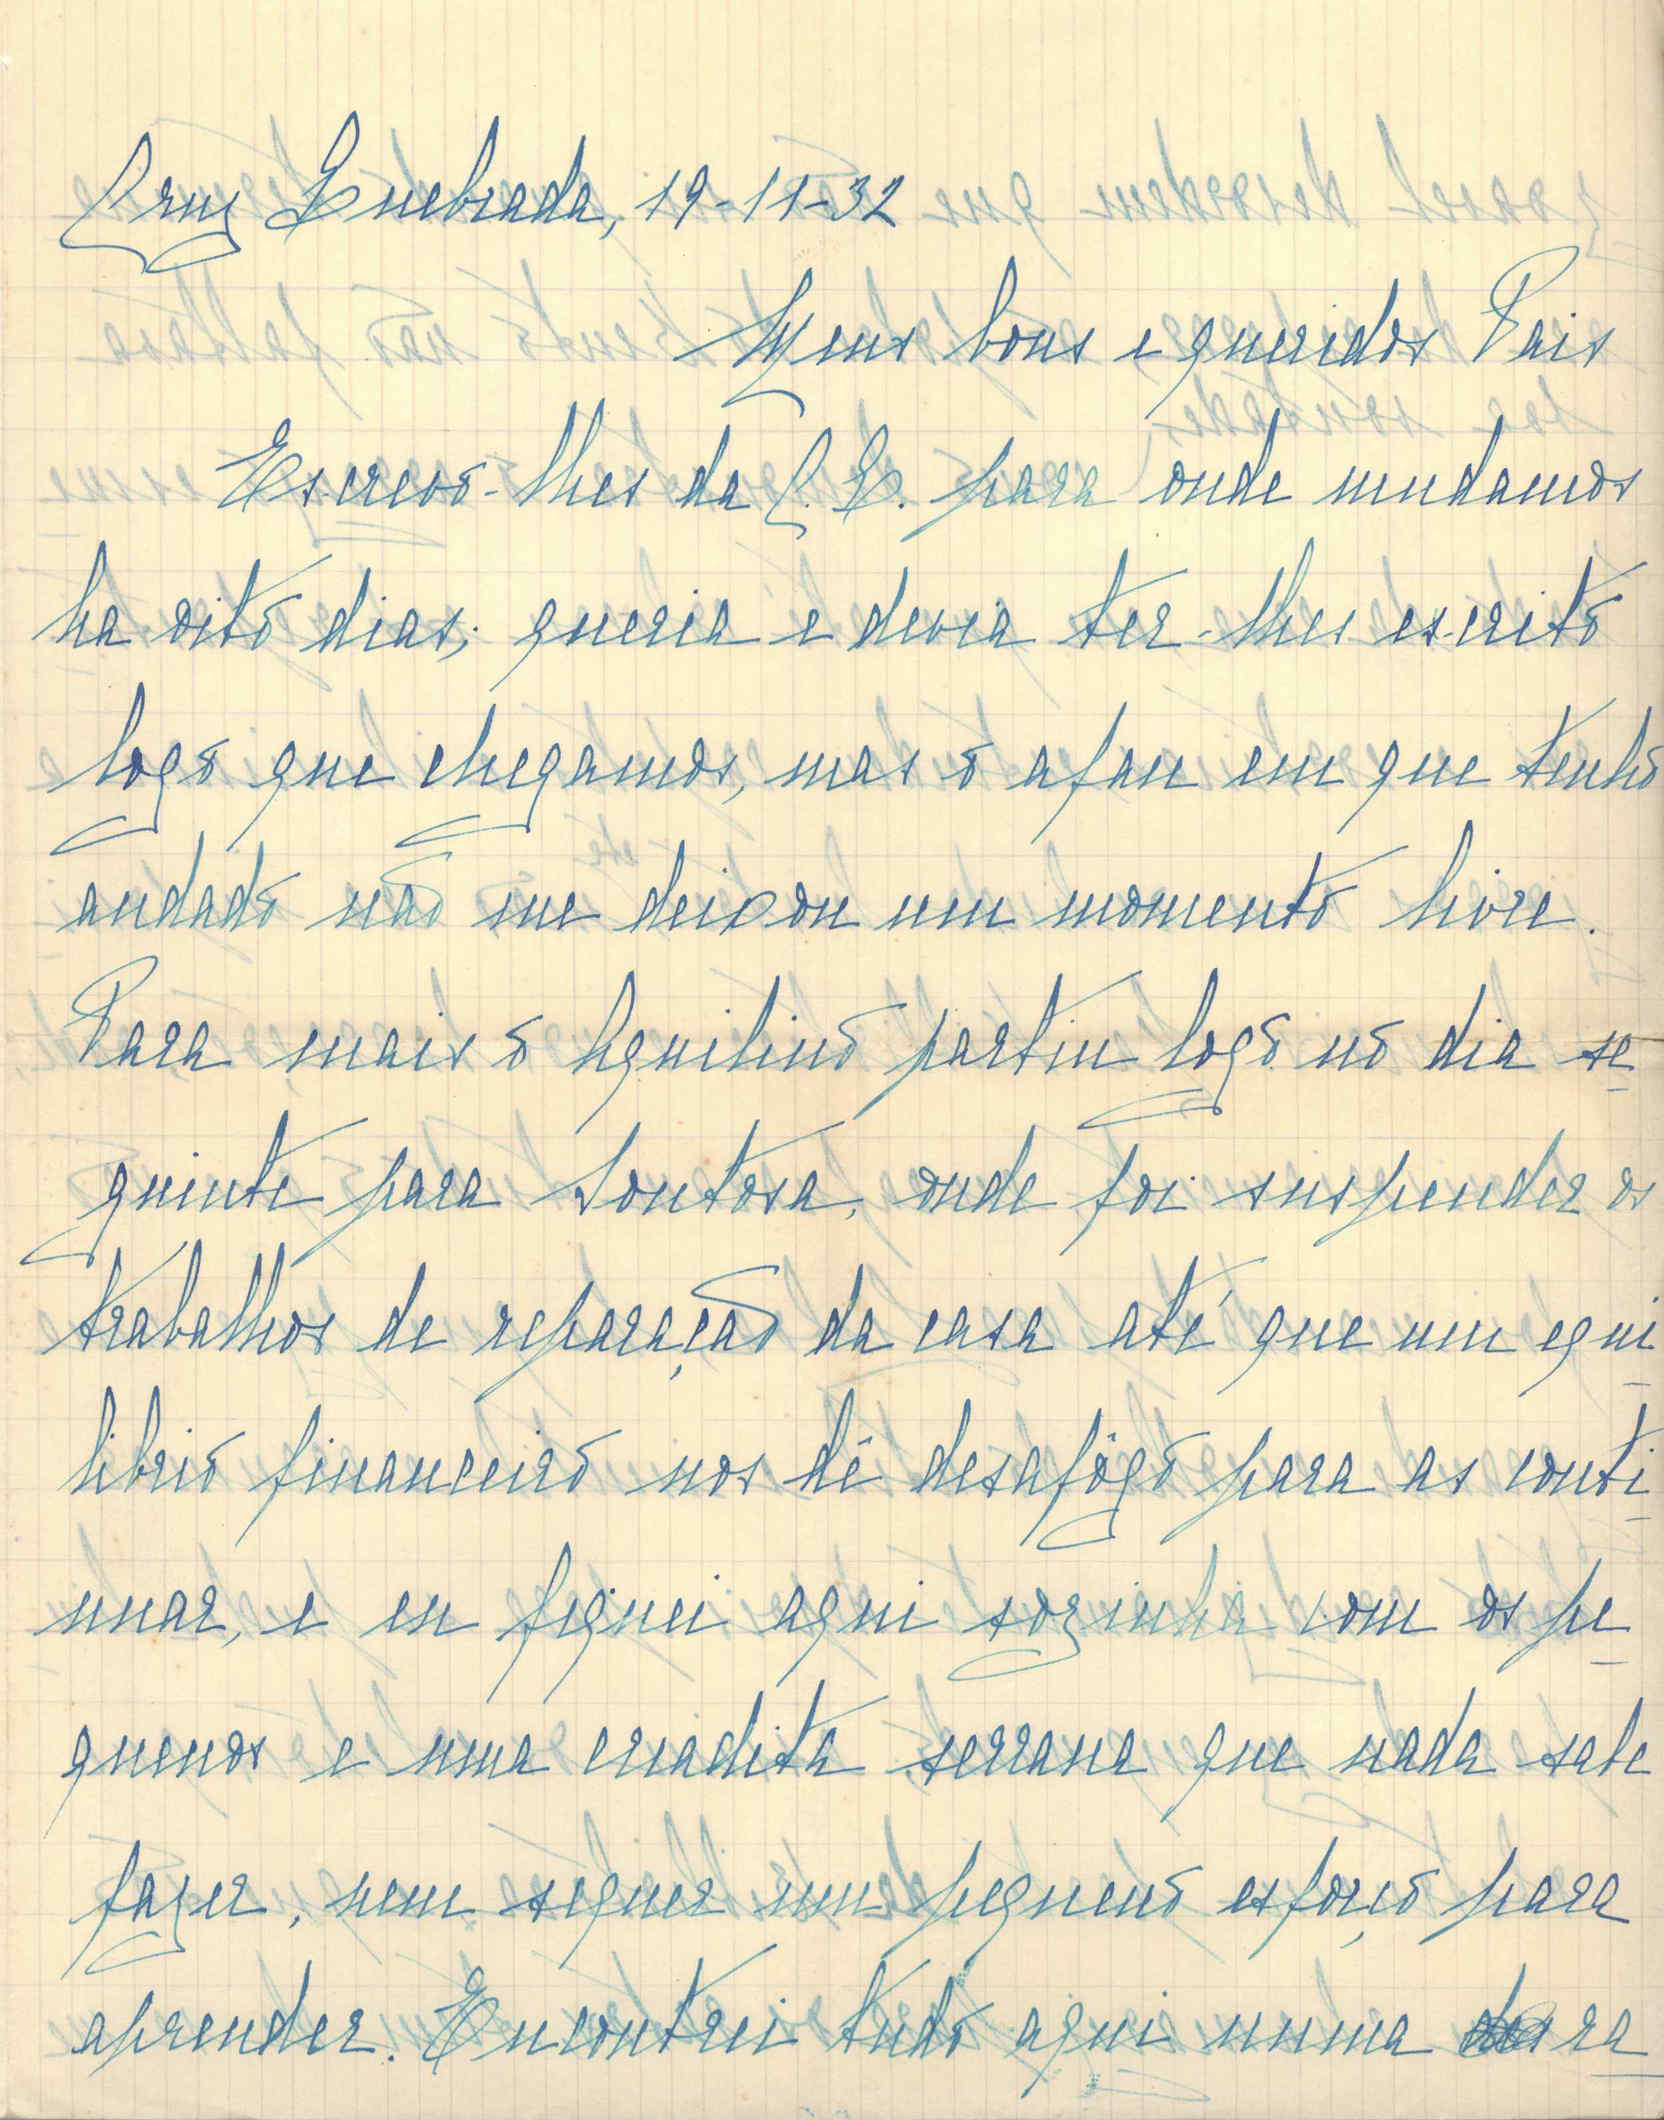 Cruz Quebrada, 19-11-32
Meus bons e queridos Pais
Escrevo-lhes da C. Q. para onde mudamos
ha oito dias; queria e devia ter-lhes escrito
logo que chegamos, mas o afan em que tenho
andado não me deixou um momento livre.
Para mais o Aquilino partiu logo no dia se
guinte para Soutosa, onde foi suspender os
trabalhos de reparação da casa até que um equi
librio financeiro nos dê desafôgo para as conti
nuar, e eu fiquei aqui sozinha com os pe
quenos e uma criadita serrana que nada sabe
fazer, nem sequer um pequeno esforço para
aprender. Encontrei tudo aqui numa ra